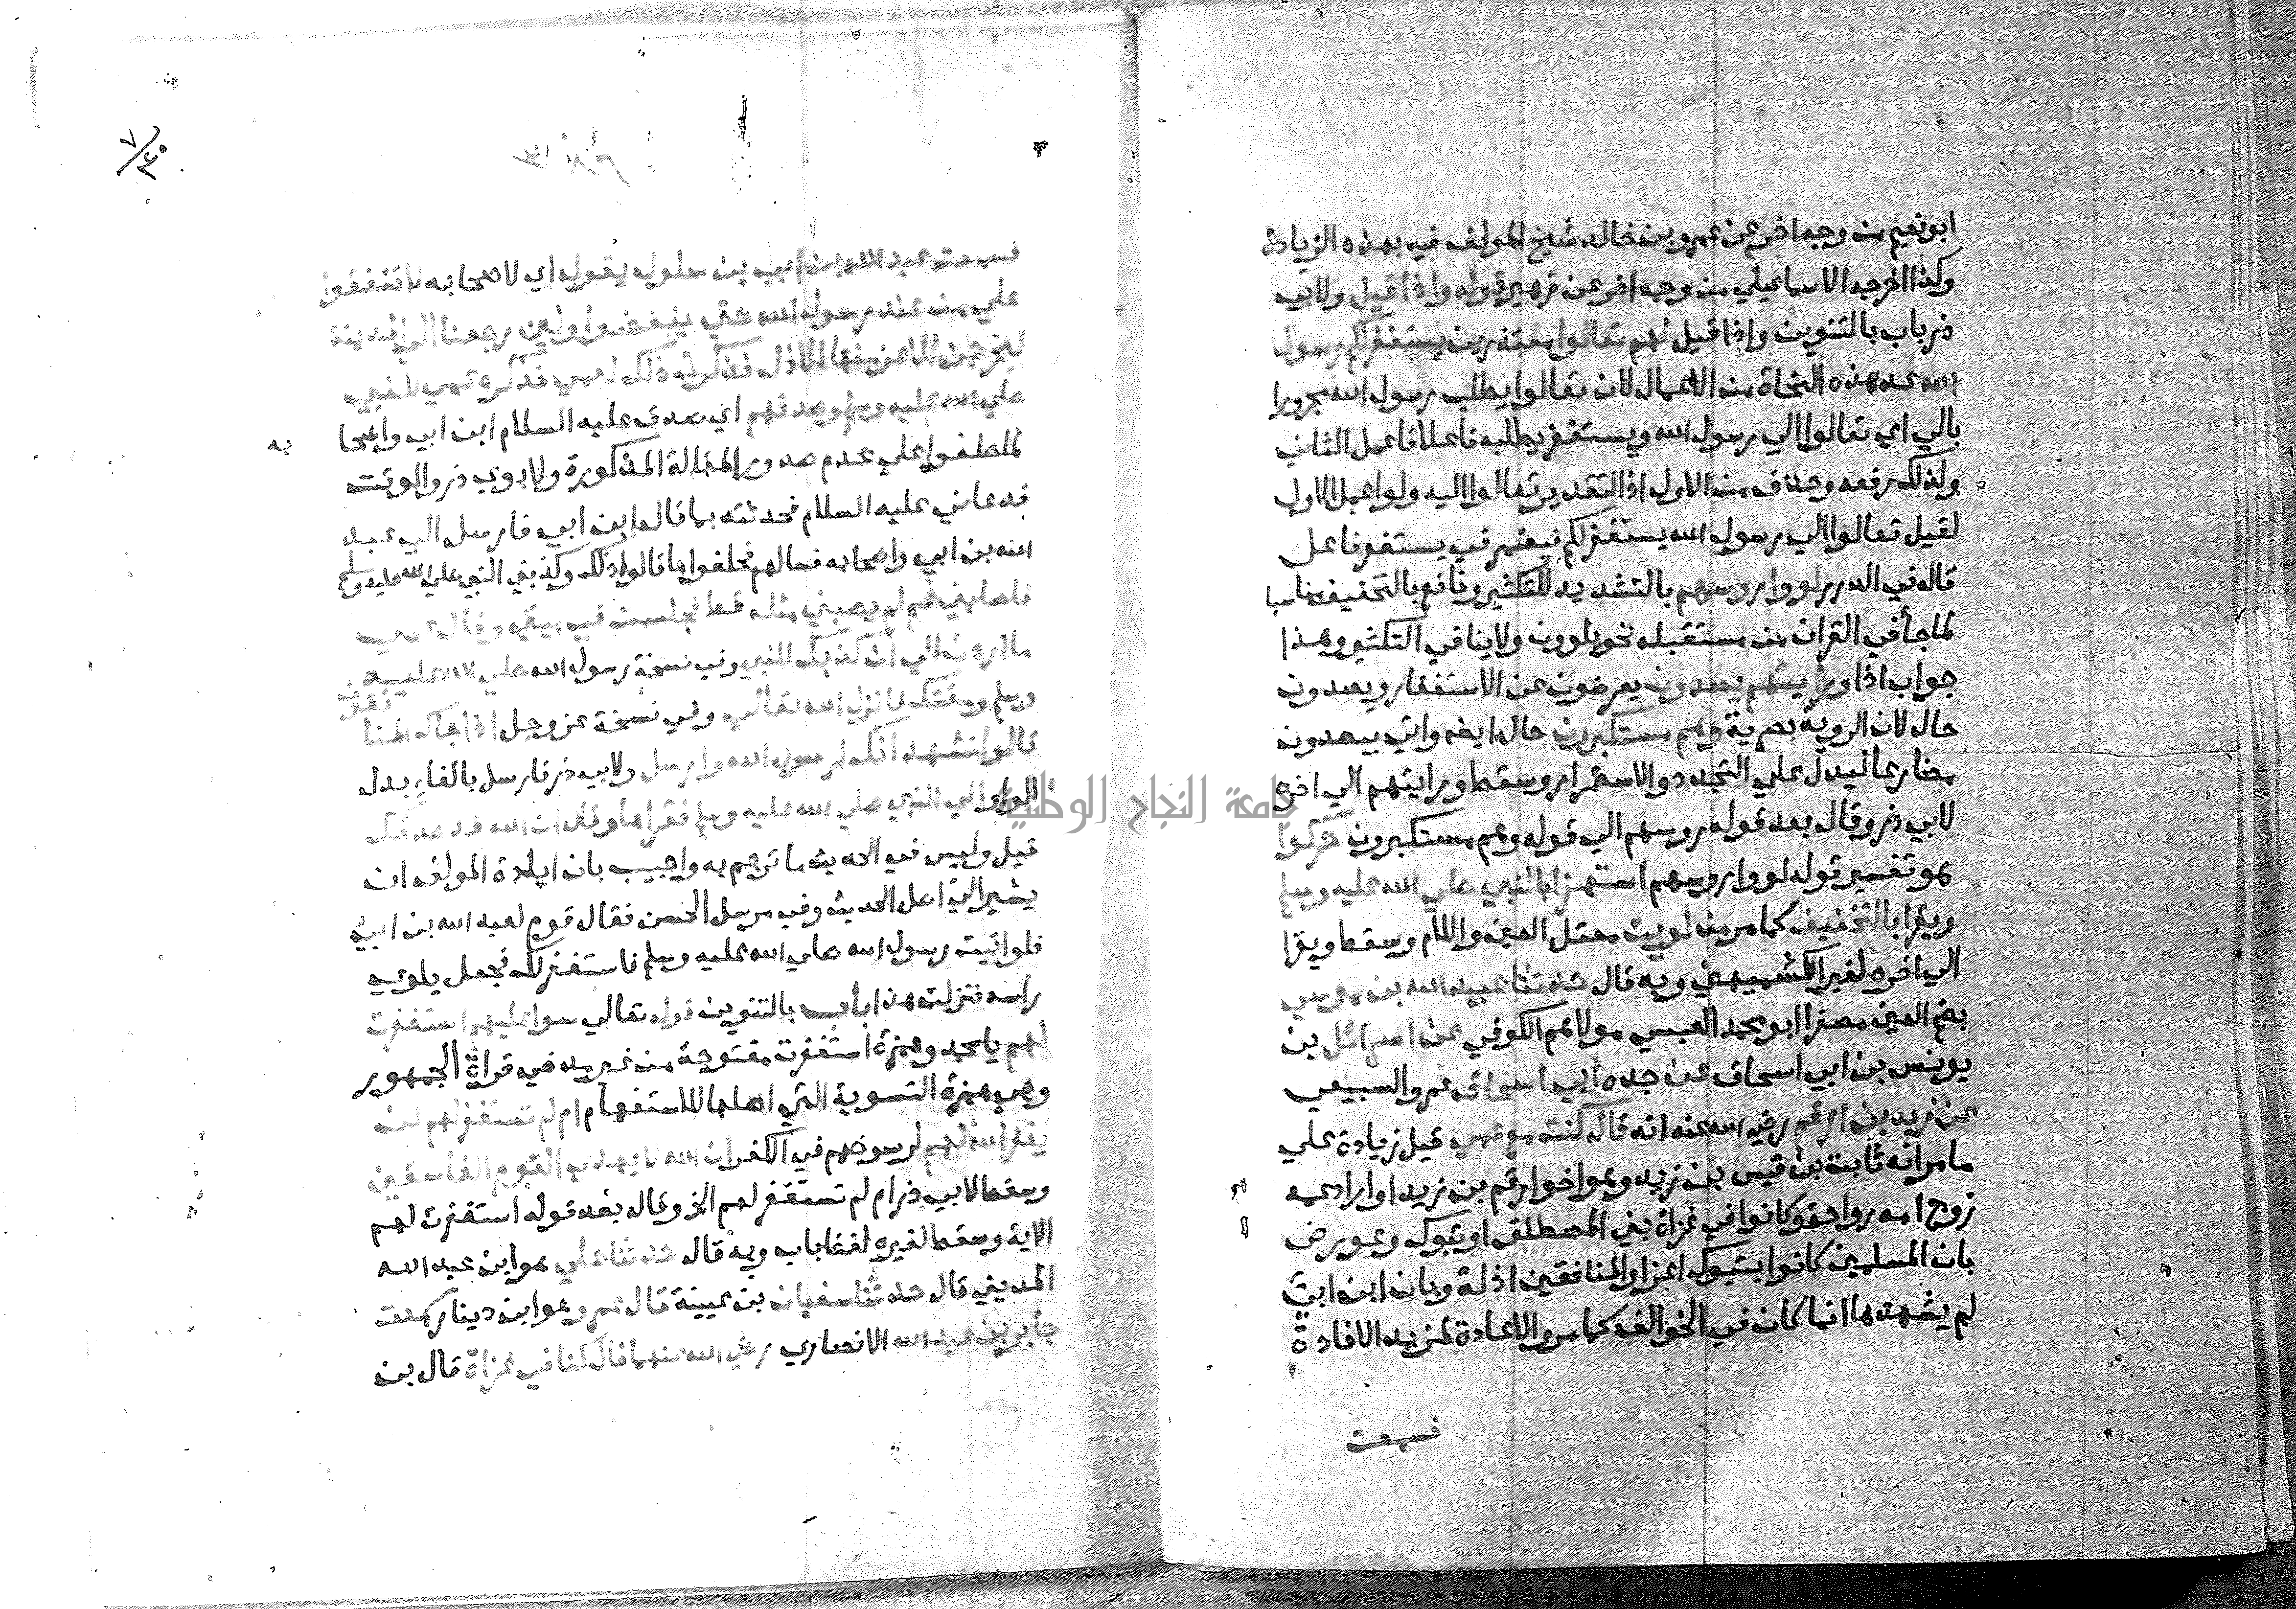 ابو نعيم من وجه اخر عن عمرو بن خالد شيخ المولف فيه بهذه الزيادة
وكذا اخرجه الاسماعيلي من وجه اخر عن زهير قوله واذا قيل ولابي
ذر باب بالتنوين واذا قيل لهم تعالوا معتذرين يستغفر لكم رسول
الله عد هذه النحاة من الاعمال لان تعالوا يطلب رسول الله مجرورا
بالي اي تعالوا الي رسول الله ويستغفر يطلبه فاعلا فاعمل الثاني
ولذلك رفعه وحذف من الاول اذ التقدير تعالوا اليه ولو اعمل الاول
لقيل تعالوا الي رسول الله يستغفر لكم فيضمر في يستغفر فاعل
قاله في الدر لووا روسهم بالتشديد للتكثير ونافع بالتخفيف مناسبا
لما جأ في القران من مستقبله نحو يلوون ولا ينافي التكثير وهذا
جواب اذا ورايتهم يصدون يعرضون عن الاستغفار ويصدون
حال لان الروية بصرية وهم مستكبرون حال ايضا واتي بيصدون
مضارعا ليدل علي التجدد والاستمرار وسقط ورايتهم الي اخره
لابي ذر وقال بعد قوله روسهم الي قوله وهم مستكبرون حركوا
هو تفسير قوله لووا روسهم استهزأ بالنبي صلي الله عليه وسلم
ويقرا بالتخفيف كما مر من لويت معتل العين واللام وسقط ويقرا
الي اخره لغير الكشميهني وبه قال حدثنا عبيد الله بن موسي
بضم العين مصغرا ابو محمد العبسي مولاهم الكوفي عن اسرائل بن
يونس بن ابي اسحاق عن جده ابي اسحاق عمرو السبيعي
عن زيد بن ارقم رضي الله عنه انه قال كنت مع عمي قيل زيادة علي
ما مر انه ثابت بن قيس بن زيد وهو اخو ارقم بن زيد او اراد عمه
زوج امه رواحة وكانوا في غزاة بني المصطلق او تبوك وعورض
بان المسلمين كانوا بتبوك اعزا والمنافقين اذلة وبان ابن ابي
لم يشهدها انما كان في الخوالف كما مر والاعادة لمزيد الافادة
فسمعت
٧/٣٠
فسمعت عبد الله بن ابي بن سلول يقول اي لاصحابه لا تنفقوا
علي من عند رسول الله حتي ينفضوا ولين رجعنا الي المدينة
ليخرجن الاعز منها الاذل فذكرت ذلك لعمي فذكره عمي للنبي
صلي الله عليه وسلم وصدقهم اي صدق عليه السلام ابن ابي واصحا به
لما حلفوا علي عدم صدور المقالة المذكورة ولابوي ذر والوقت
فدعاني عليه السلام فحدثته بما قال ابن ابي فارسل الي عبد
الله بن ابي واصحابه فسالهم فحلفوا ما قالوا ذلك وكذبني النبي صلي الله عليه وسلم
فاصابني هم لم يصبني مثله قط فجلست في بيتي وقال عمي
ما اردت الي ان كذبك النبي وفي نسخة رسول الله صلي الله عليه
وسلم ومقتك فانزل الله تعالي وفي نسخة عز وجل اذا جاك المنافقون
قالوا نشهد انك لرسول الله وارسل ولابي ذر فارسل بالفا بدل
الواو الي النبي صلي الله عليه وسلم فقراها وقال ان الله قد صدقك
قيل وليس في الحديث ما ترجم به واجيب بان عادة المولف ان
يشير الي اصل الحديث وفي مرسل الحسن فقال قوم لعبد الله بن ابي
فلو اتيت رسول الله صلي الله عليه وسلم فاستغفر لك فجعل يلوي
راسه فنزلت هذا باب بالتنوين قوله تعالي سوا عليهم استغفرت
لهم يا محمد وهمزة استغفرت مفتوحة من غير مد في قراة الجمهور
وهي همزة التسوية التي اصلها للاستفهام ام لم تستغفر لهم لن
يغفر الله لهم لرسوخهم في الكفر ان الله لا يهدي القوم الفاسقين
وسقط لابي ذر ام لم تستغفر لهم الخ وقال بعد قوله استغفرت لهم
الاية وسقط لغيره لفظ باب وبه قال حدثنا علي هو ابن عبد الله
المديني قال حدثنا سفيان بن عيينة قال عمرو هو ابن دينار سمعت
جابر بن عبد الله الانصاري رضي الله عنهما قال كنا في غزاة قال بن
جامعة النجاح الوطنية